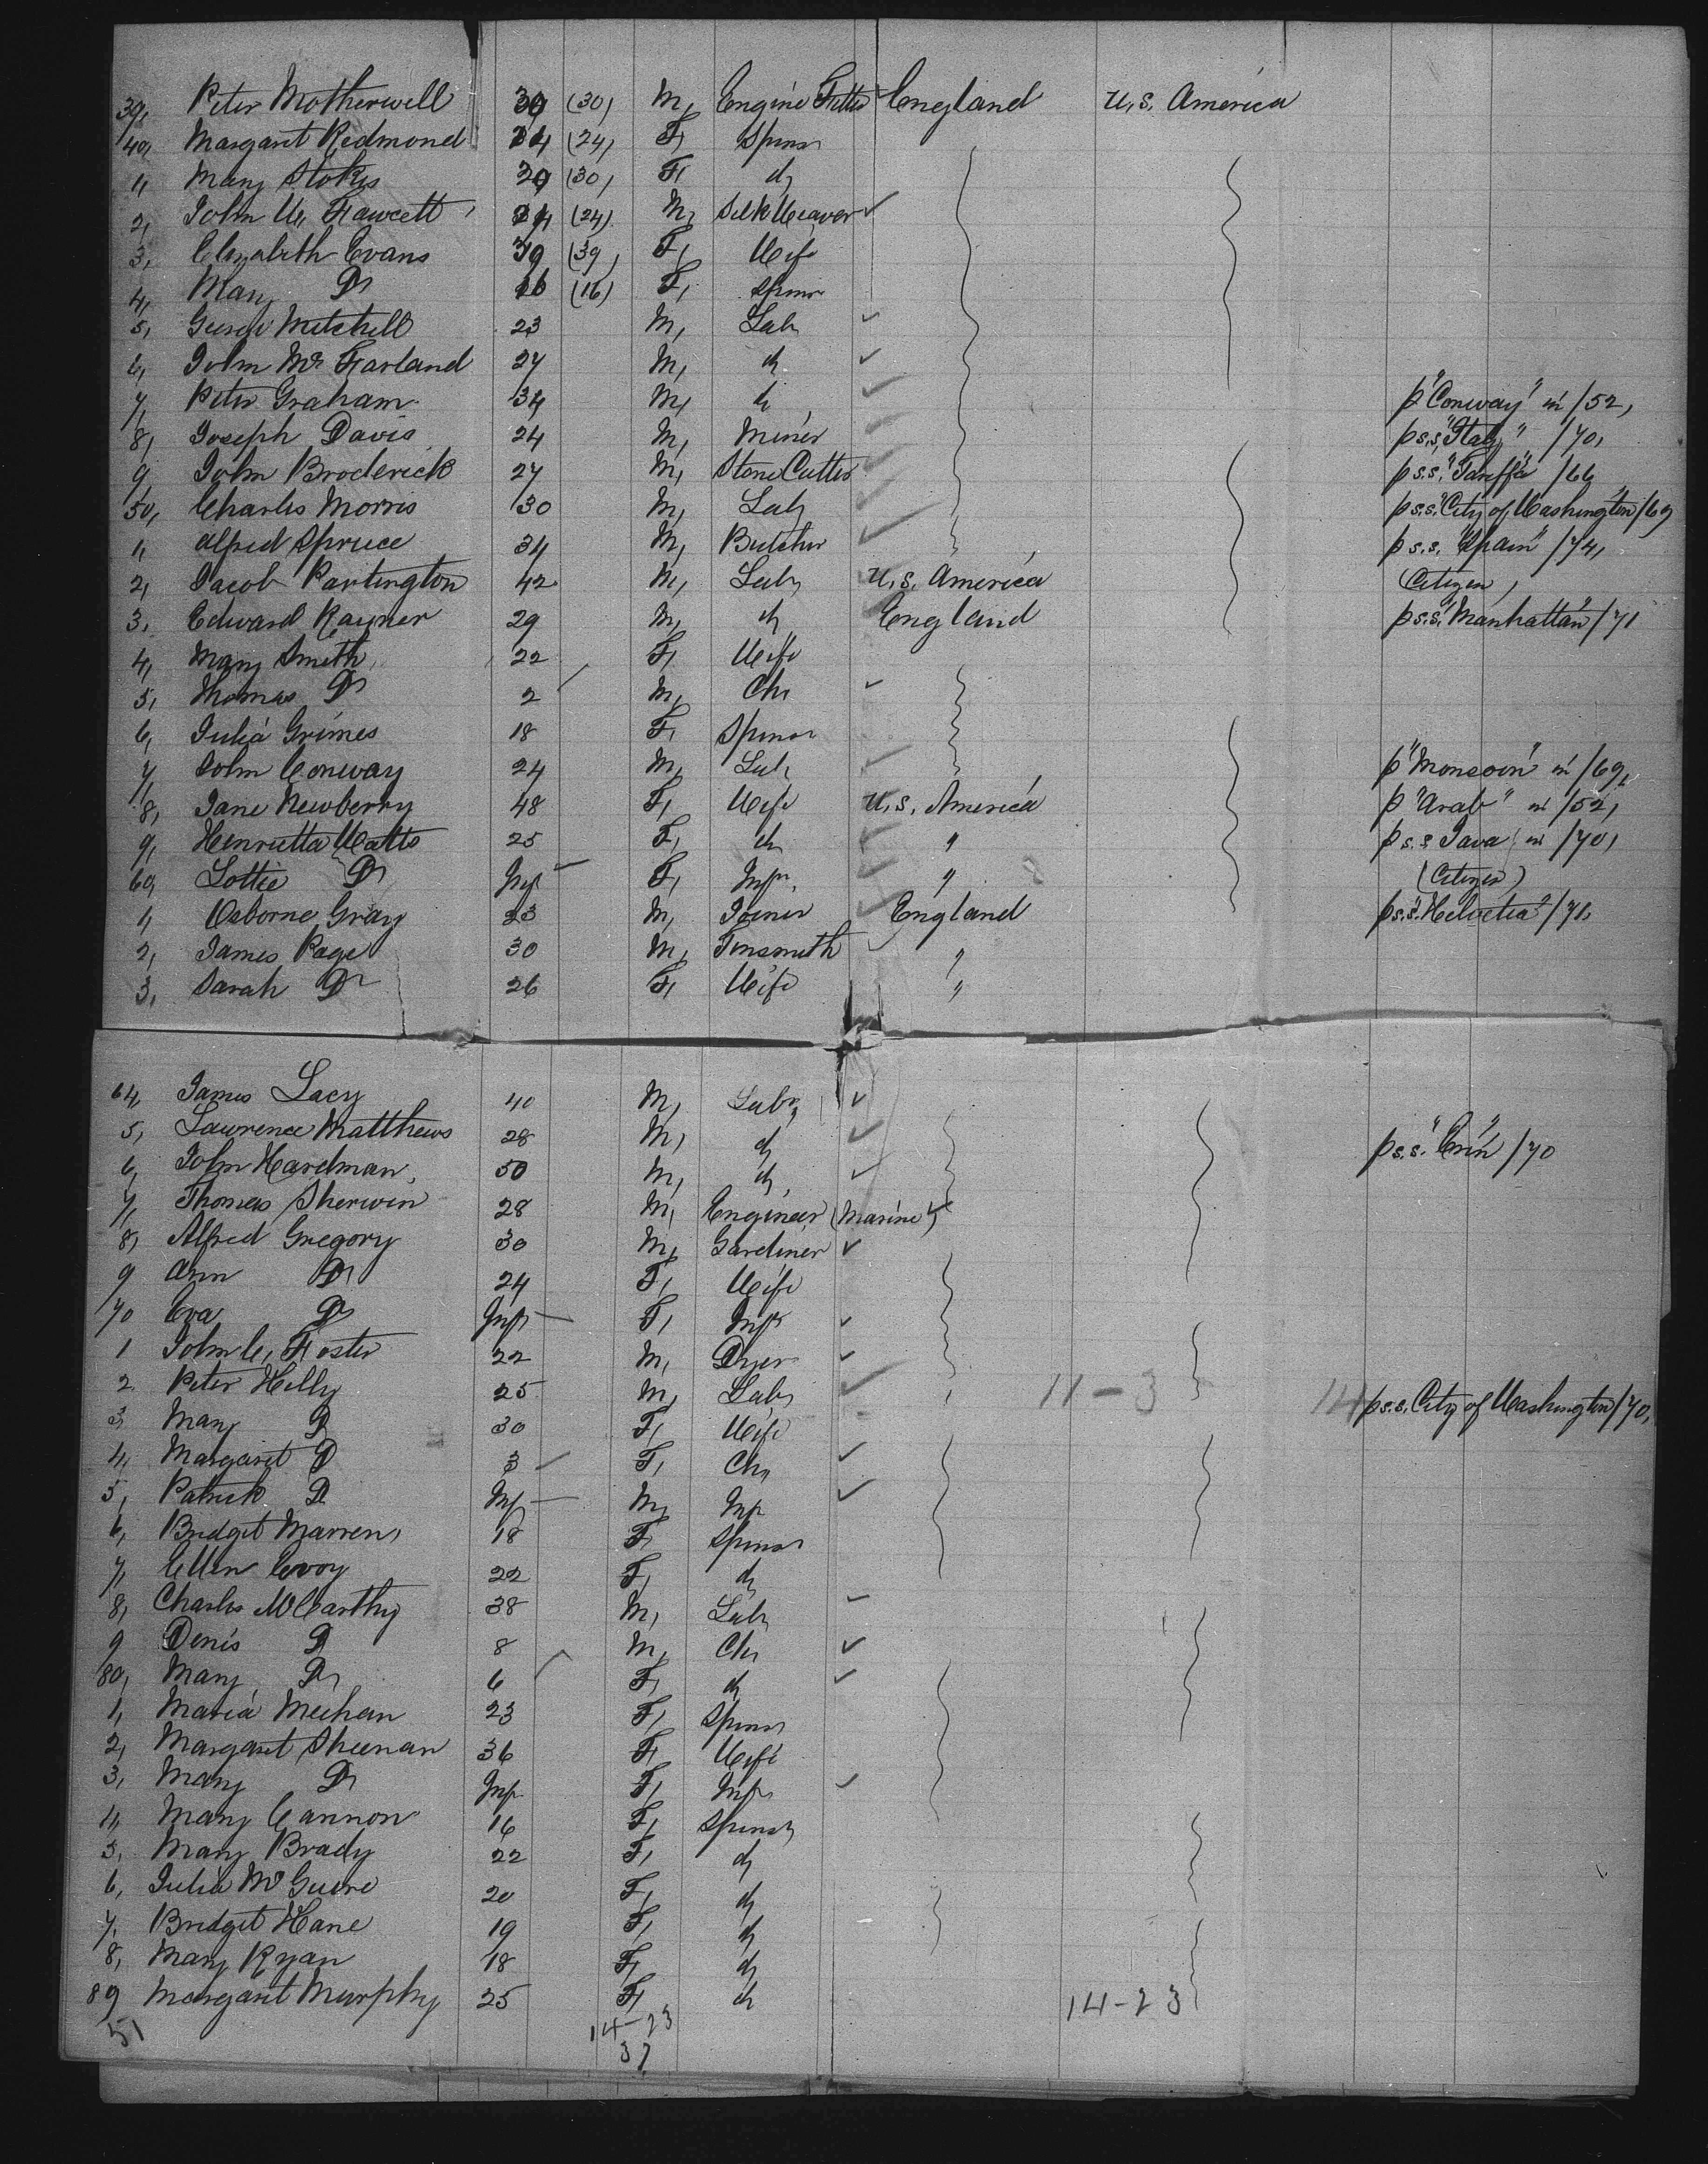 39, Peter Motherwell 30 (30) M, Engine Fitter England U.S. America
40, Margaret Redmond 24 (24) F, Spinsr
1, Mary Stokes 30 (30) F, do
2, John W, Fawcett 24 (24) M, Silk Weaver
3, Elizabeth Evans 39 (39) F, Wife
4, Mary Do 16 (16) F, Spinsr
5, George Mitchell 23 M, Labr
6, John Mc Farland 27 M, do
7, Peter Graham 34 M, do p "Conway" in /52,
8, Joseph Davis 24 M, Miner p s.s, "Italy" /70,
9, John Broderick 27 M, Stone Cutter p s.s. "Tariffa" /66
50, Charles Morris 30 M, Labr p s.s. "City of Washington" /69
1, Alfred Spruce 34 M, Butcher p s.s. "Spain" /74,
2, Jacob Partington 42 M, Labr U.S. America Citizen,
3, Edward Rayner 29 M, do England p s.s. "Manhattan" /71
4, Mary Smith 22 F, Wife
5, Thomas Do 2 M, Chi
6, Julia Grimes 18 F, Spinsr
7, John Conway 24 M, Labr p "Monsoon" in /69,
8, Jane Newberry 48 F, Wife U.S. America p "Arab" in /52,
9, Henrietta Watts 25 F, do " p s.s Java in /70,
60, Lottie Do Inft F, Inft. " (Citizen)
1, Osborne Gray 23 M, Joiner England p s.s. "Helvetia" /71,
2, James Page 30 M, Tinsmith "
3, Sarah Do 26 F, Wife "
64, James Lacy 40 M, Labr
5, Lawrence Matthews 28 M, do p s.s. "Erin" /70
6, John Hardman, 50 M, do
7, Thomas Sherwin 28 M, Engineer (Marine)
8, Alfred Gregory 30 M, Gardiner
9 Ann Do 24 F, Wife
70 Eva Do Inft F, Inft
1 John C, Foster 22 M, Dyer
2 Peter Hilly 25 M, Labr 11-3 p s.s. City of Washington /70,
3, Mary Do 30 F, Wife
4, Margaret Do 3 F, Chi
5, Patrick Do Inf M, Inf
6, Bridget Marren, 18 F, Spinsr
7, Ellen Evoy 22 F, do
8, Charles McCarthy 38 M, Labr
9 Denis Do 8 M, Chi
80, Mary Do 6 F, do
1, Maria Meehan 23 F, Spinsr
2, Margaret Sheenan 36 F, Wife
3, Mary Do Inf F, Inft
4, Mary Cannon 16 F, Spinsr
5, Mary Brady 22 F, do
6, Julia McGuire 20 F, do
7, Bridget Hane 19 F, do
8, Mary Ryan 18 F, do
89 Margaret Murphy 25 F, do 14-23
51 14-23
37